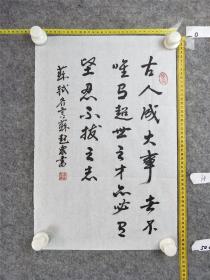 古人成大事者不
唯有超世之才亦必有
堅忍不拔之志
蘇軾名言蘇書